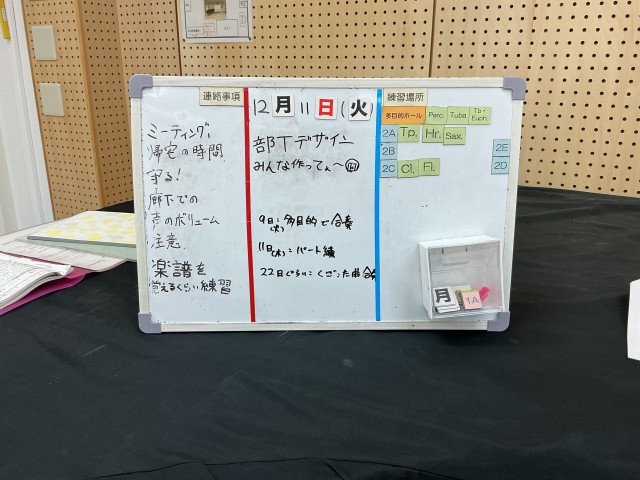 連絡事項
ミーティング、
帰宅の時間
守る!
廊下での
声のボリューム
注意
楽譜を
覚えるくらい練習
12月11日(火)
部Tデザイン
みんな作ってぇ〜
9日(火):多目的で合奏
11日(木):パート練
22日ぐらい:くるみ
練習場所
多目的ホール Perc. Tuba Tb・Euph.
2A Tp. Hr. Sax.
2B 2E
2C Cl. Fl. 2D
月 1A